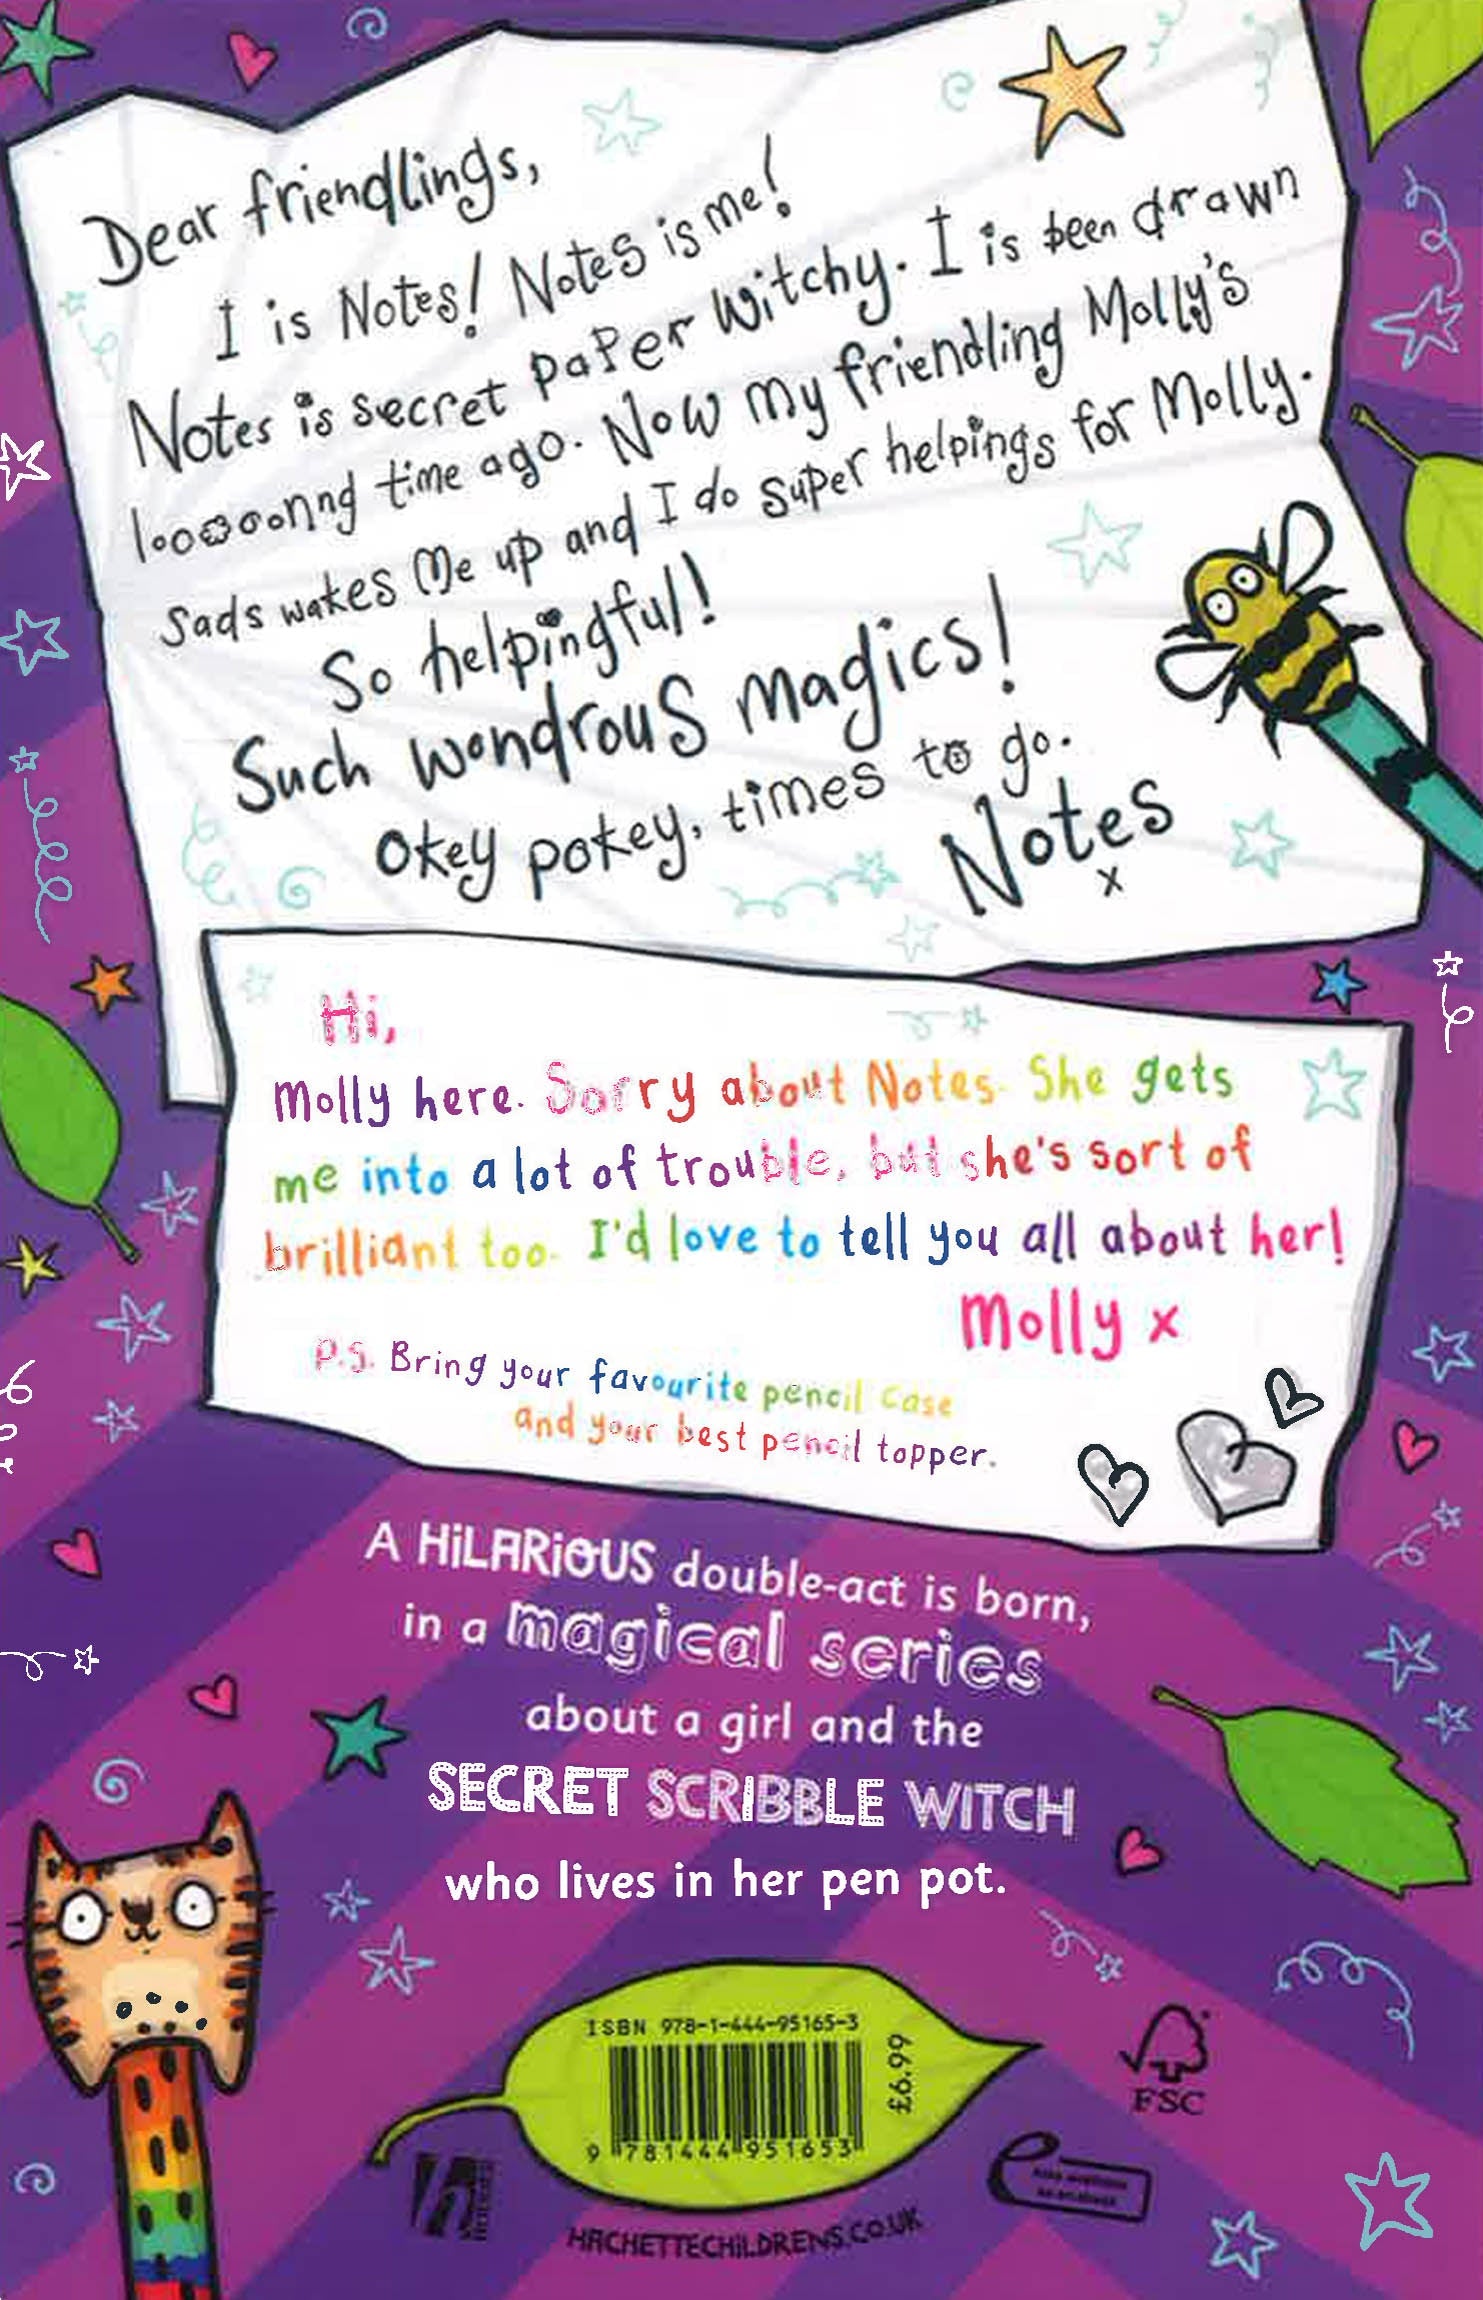 Dear friendlings,
I is Notes! Notes is me!
Notes is secret paper witchy. I is been drawn
looooonng time ago. Now my friendling Molly's
sads wakes me up and I do super helpings for Molly.
So helpingful!
Such wondrous magics!
Okey pokey, times to go.
Notes
x
Hi,
Molly here. Sorry about Notes. She gets
me into a lot of trouble, but she's sort of
brilliant too. I'd love to tell you all about her!
Molly x
P.S. Bring your favourite pencil case
and your best pencil topper.
A HiLARiOUS double-act is born,
in a magical series
about a girl and the
SECRET SCRIBBLE WITCH
who lives in her pen pot.
ISBN 978-1-444-95165-3
£6.99
9 781444 951653
FSC
HACHETTECHiLDRENS.CO.UK